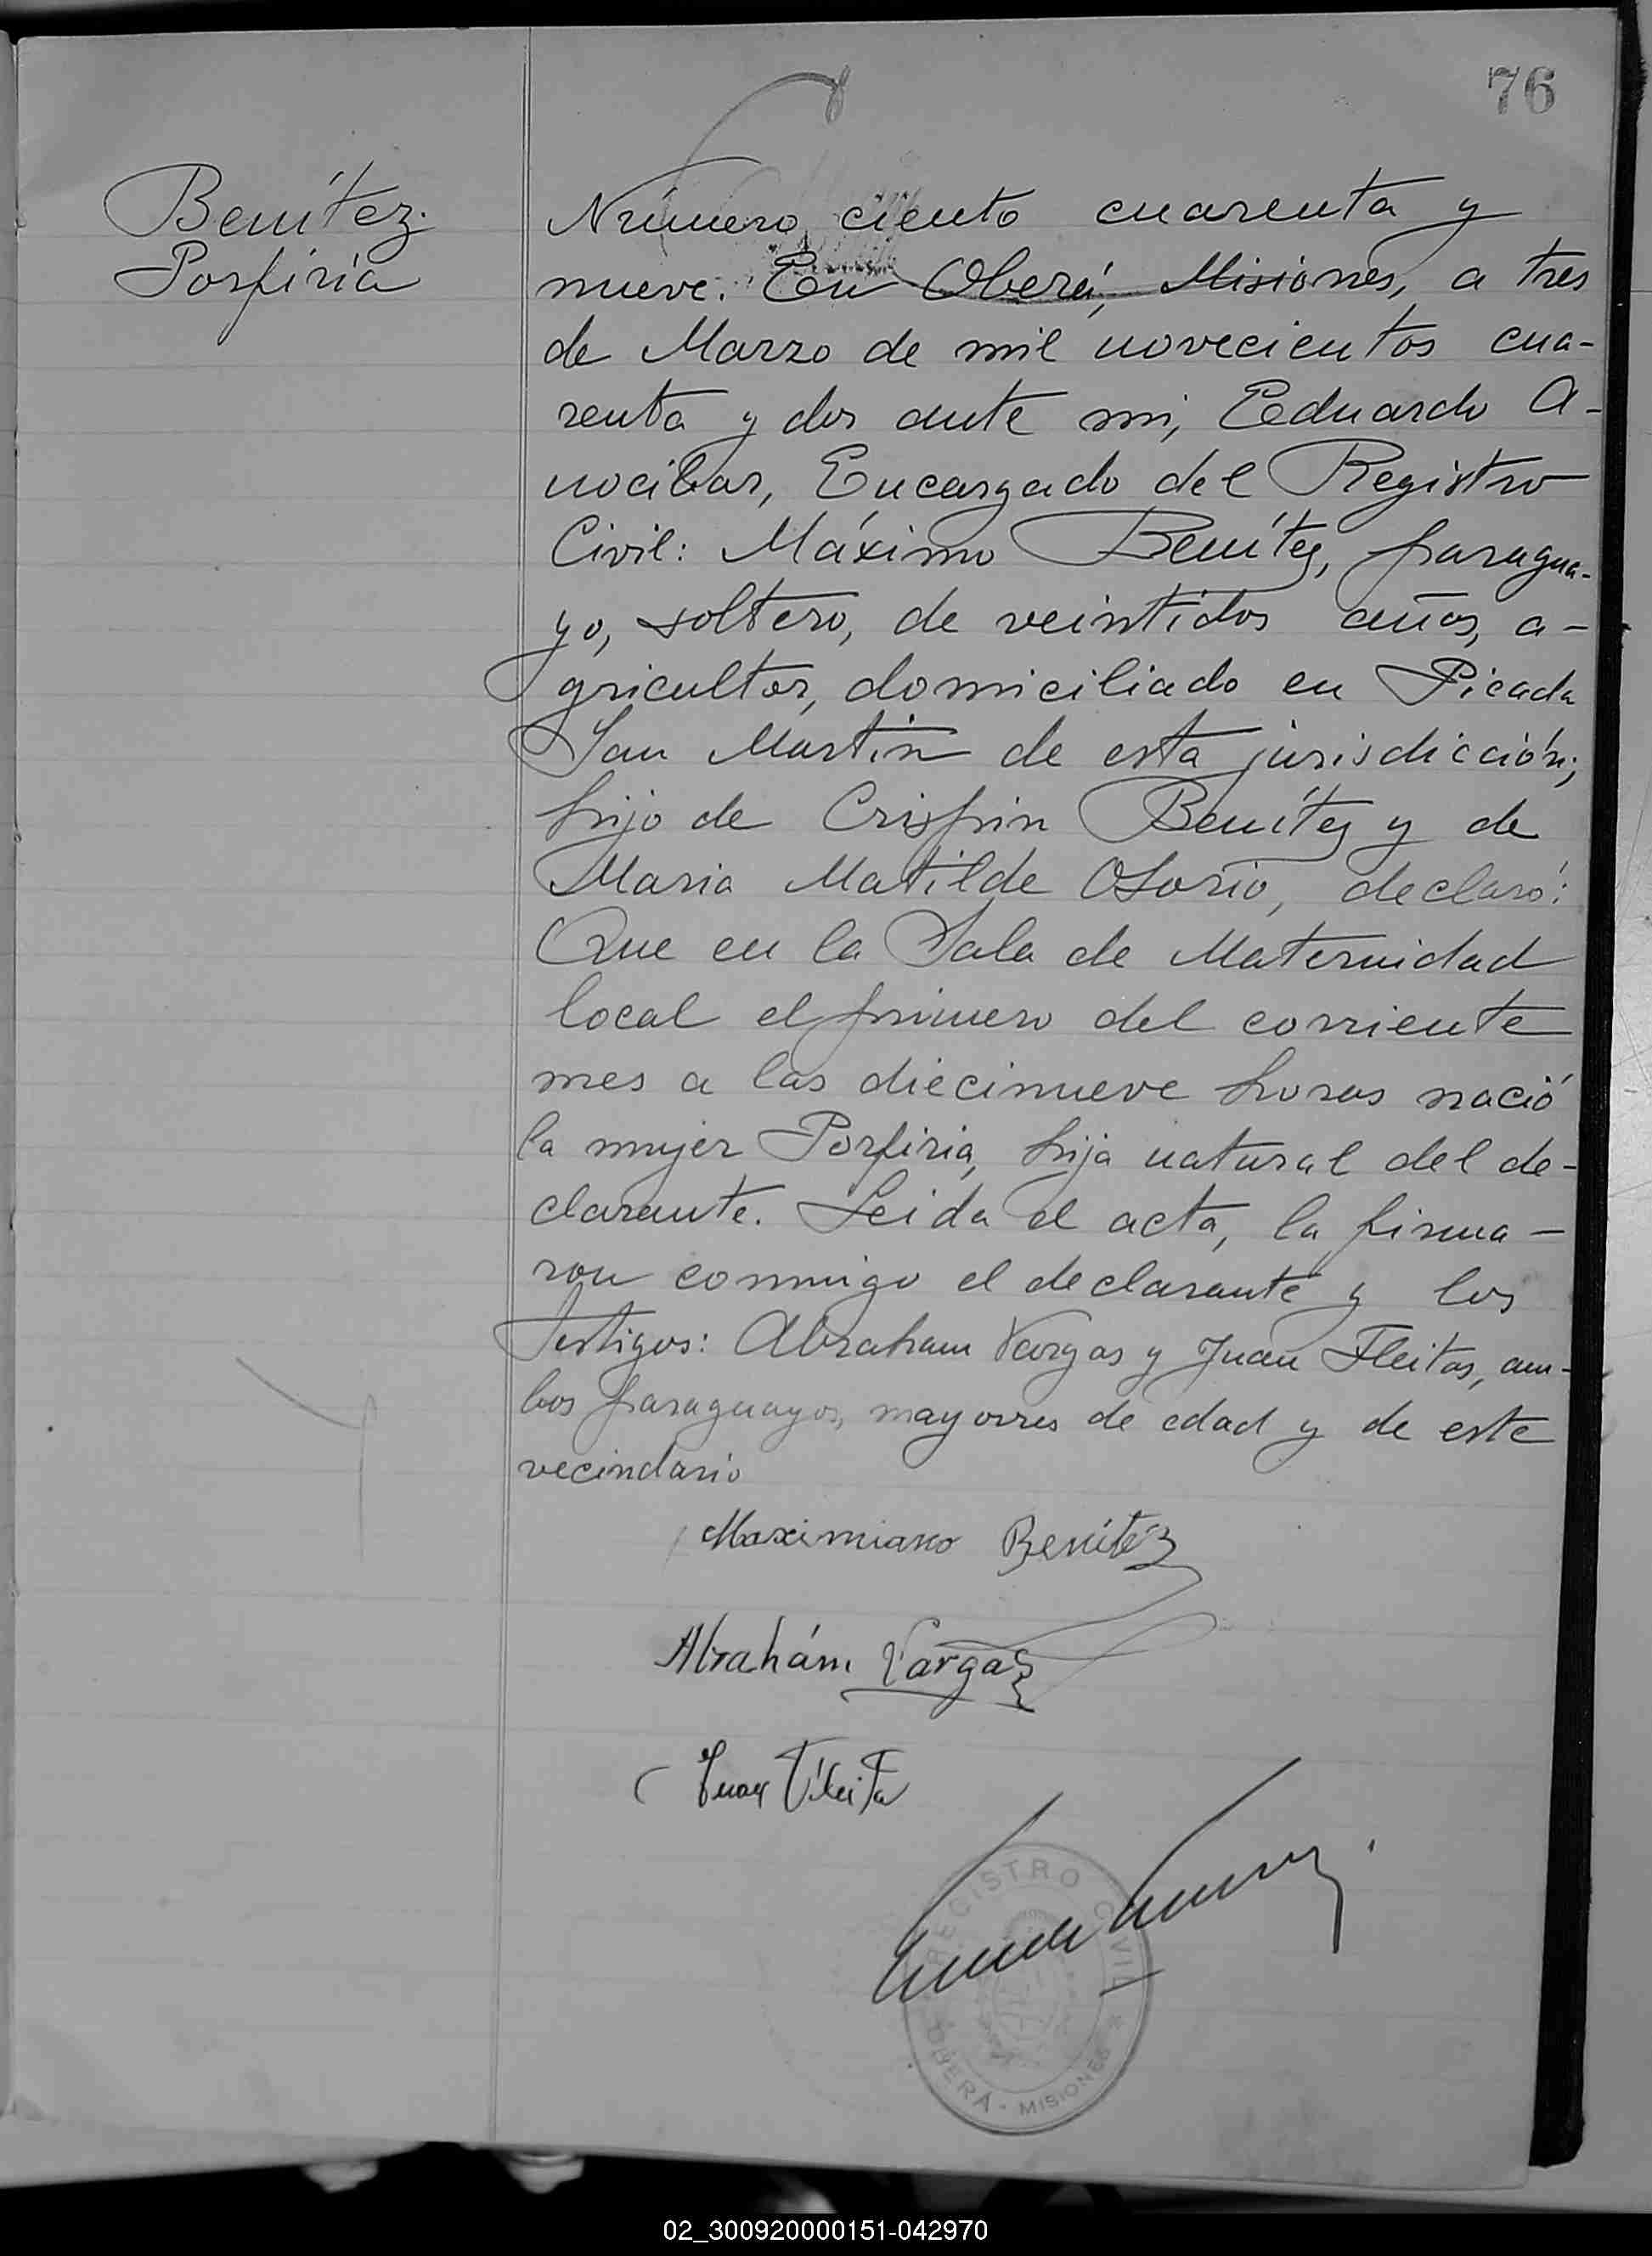 76
Benítez.
Porfiria
Número ciento cuarenta y
nueve. En Oberá, Misiones, a tres
de Marzo de mil novecientos cua-
renta y dos ante mi, Eduardo A-
nocibar, Encargado del Registro
Civil: Máximo Benítez, paragua-
yo, soltero, de veintidos años, a-
gricultor, domiciliado en Picada
San Martin de esta jurisdicción;
hijo de Crispin Benítez y de
Maria Matilde Osorio, declaró:
Que en la Sala de Maternidad
local el primero del corriente
mes a las diecinueve horas nació
la mujer Porfiria, hija natural del de-
clarante. Leida el acta, la firma-
ron conmigo el declarante y los
testigos: Abraham Vargas y Juan Fleitas, am-
bos paraguayos, mayorres de edad y de este
vecindario
Maximiano Benítez
Abrahám Vargas
Juan Fleita
REGISTRO CIVIL
OBERÁ - MISIONES
02_300920000151-042970